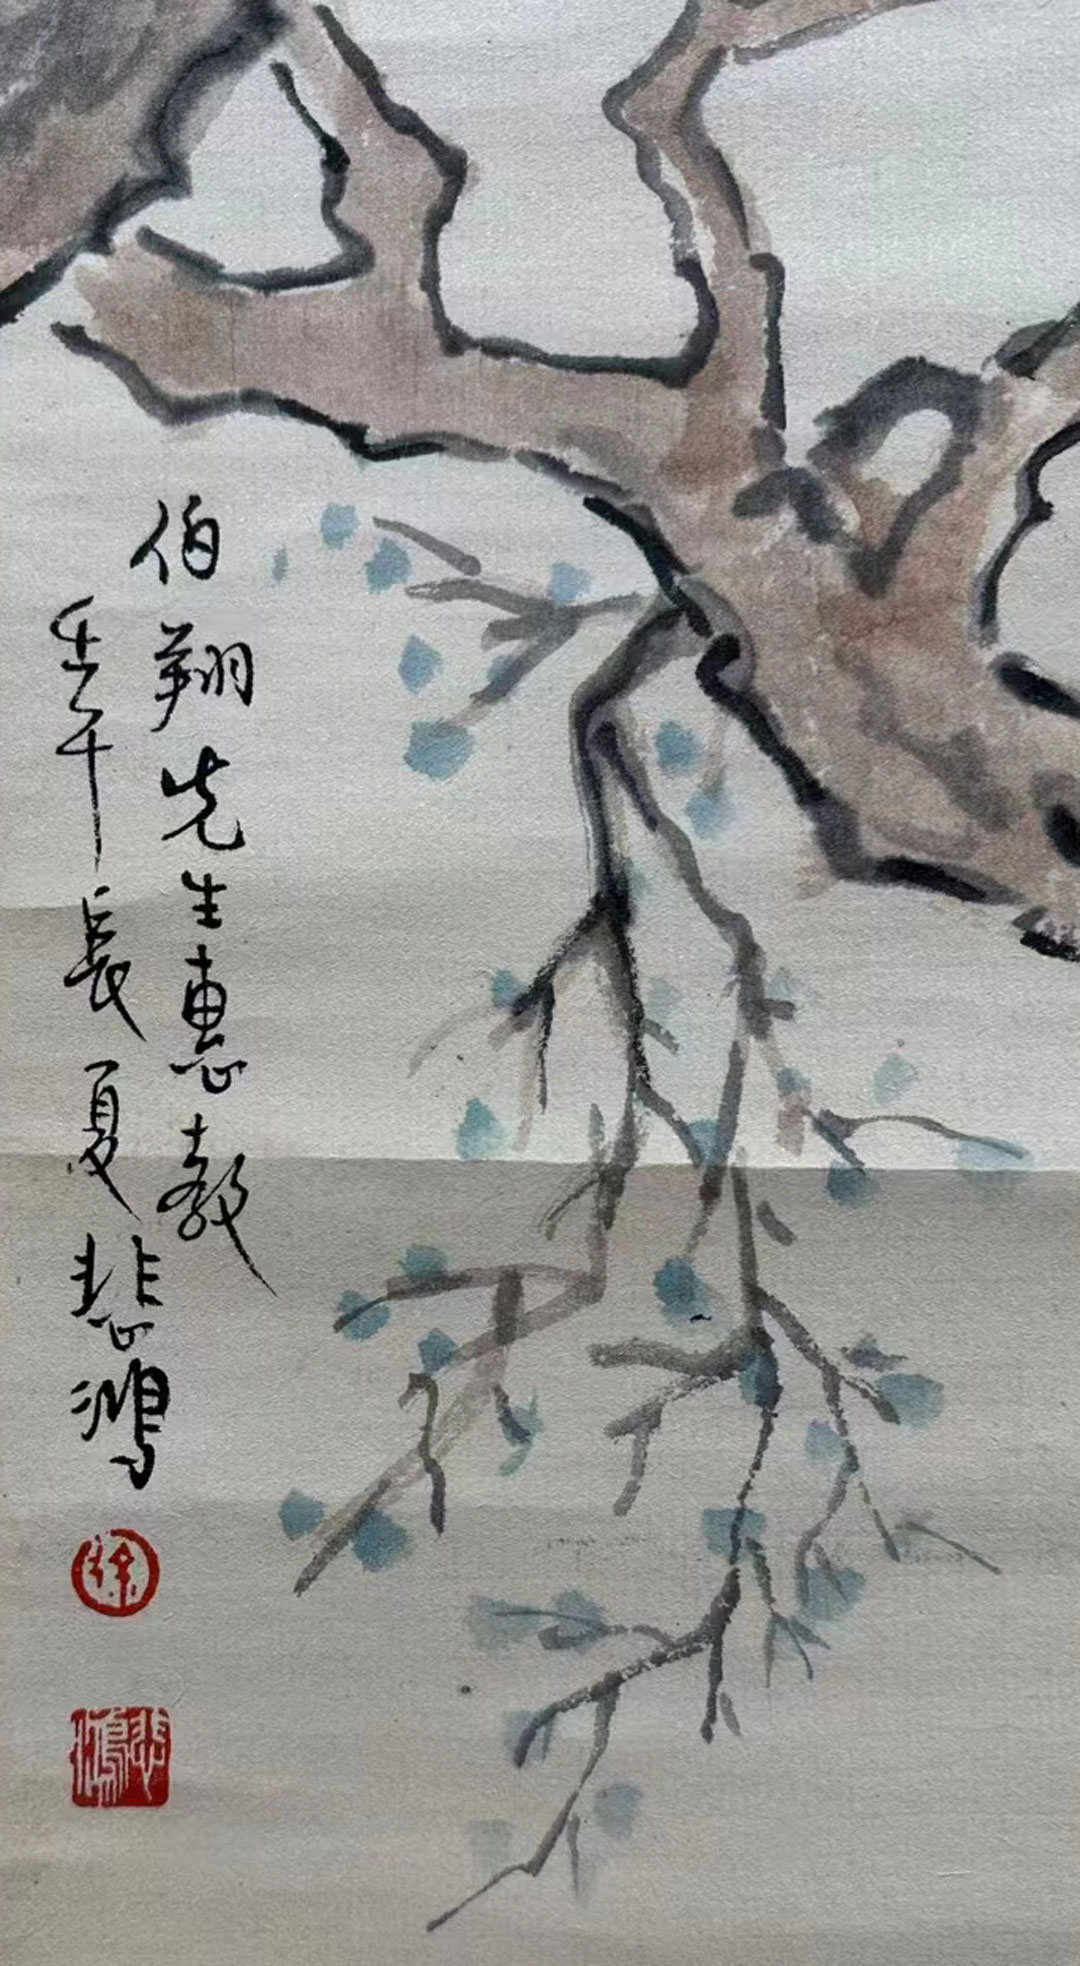 伯翔先生惠教
壬午长夏悲鸿
徐
悲鸿